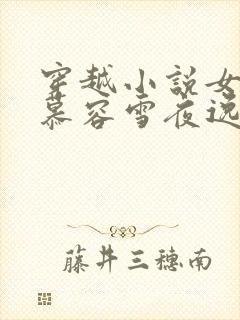 穿越小说女
慕容雪夜逸
藤井三穗南